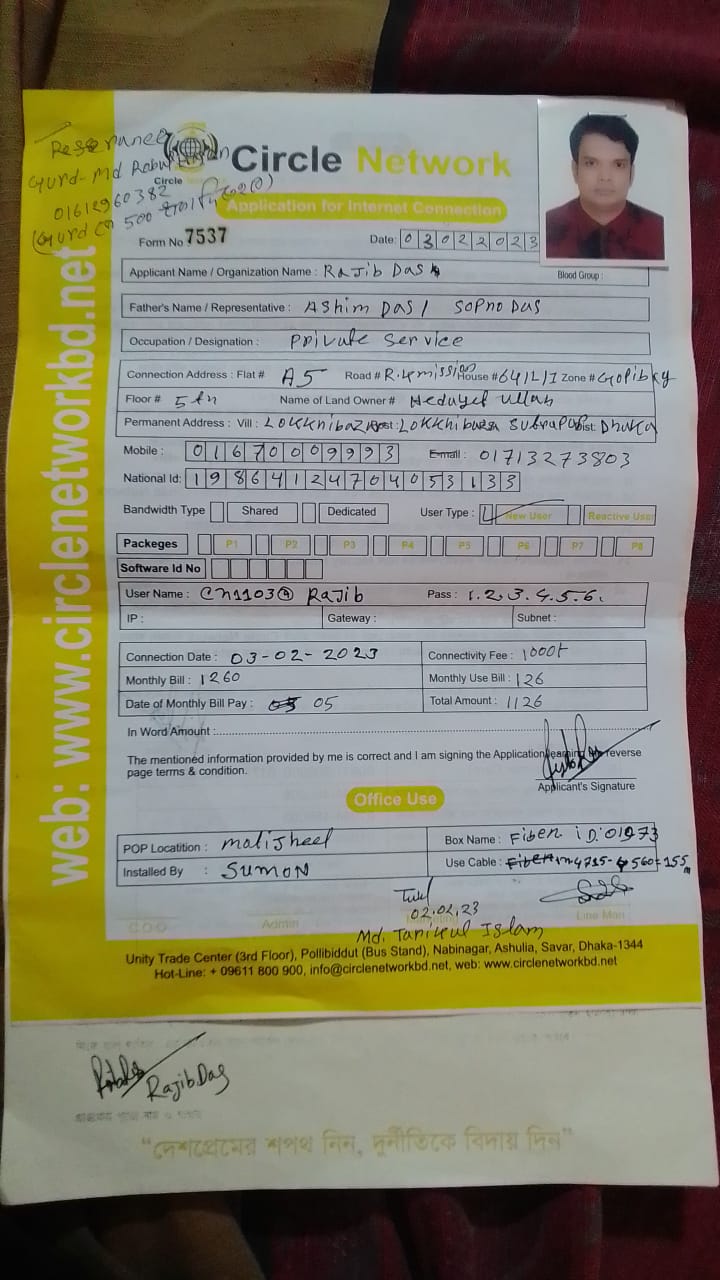 Reserance
Gurd- Md
01612960382
500
Circle
Circle Network
Application for Internet Connection
Form No 7537
Date: 03022023
Applicant Name / Organization Name : Rajib Das
Blood Group :
Father's Name / Representative : Ashim Das / Sopno Das
Occupation / Designation : Private Service
Connection Address : Flat # A5 Road # R.k mission House # 64/L/1 Zone #
Floor # 5th Name of Land Owner # Hedayet Ullah
Permanent Address : Vill : Lokkhibazar Post: Dist: Dhaka
Mobile : 01670009993 Email : 01713273803
National Id: 19864124704053133
Bandwidth Type Shared Dedicated User Type : New User Reactive User
Packeges P1 P2 P3 P4 P5 P6 P7 P8
Software Id No
User Name : Rajib Pass : 1.2.3.4.5.6.
IP : Gateway : Subnet :
Connection Date : 03-02-2023 Connectivity Fee : 1000
Monthly Bill : 1260 Monthly Use Bill : 126
Date of Monthly Bill Pay : 05 Total Amount : 1126
In Word Amount :
The mentioned information provided by me is correct and I am signing the Application reverse
page terms & condition.
Applicant's Signature
Office Use
POP Locatition : motijheel Box Name : Fiber iD: 01973
Installed By : SUMON Use Cable : 4715-4560=155m
02.02.23
COO Admin Line Man
Md. Tarikul Islam
Unity Trade Center (3rd Floor), Pollibiddut (Bus Stand), Nabinagar, Ashulia, Savar, Dhaka-1344
Hot-Line: + 09611 800 900, info@circlenetworkbd.net, web: www.circlenetworkbd.net
web: www.circlenetworkbd.net
Rajib Das
“দেশপ্রেমের শপথ নিন, দুর্নীতিকে বিদায় দিন”